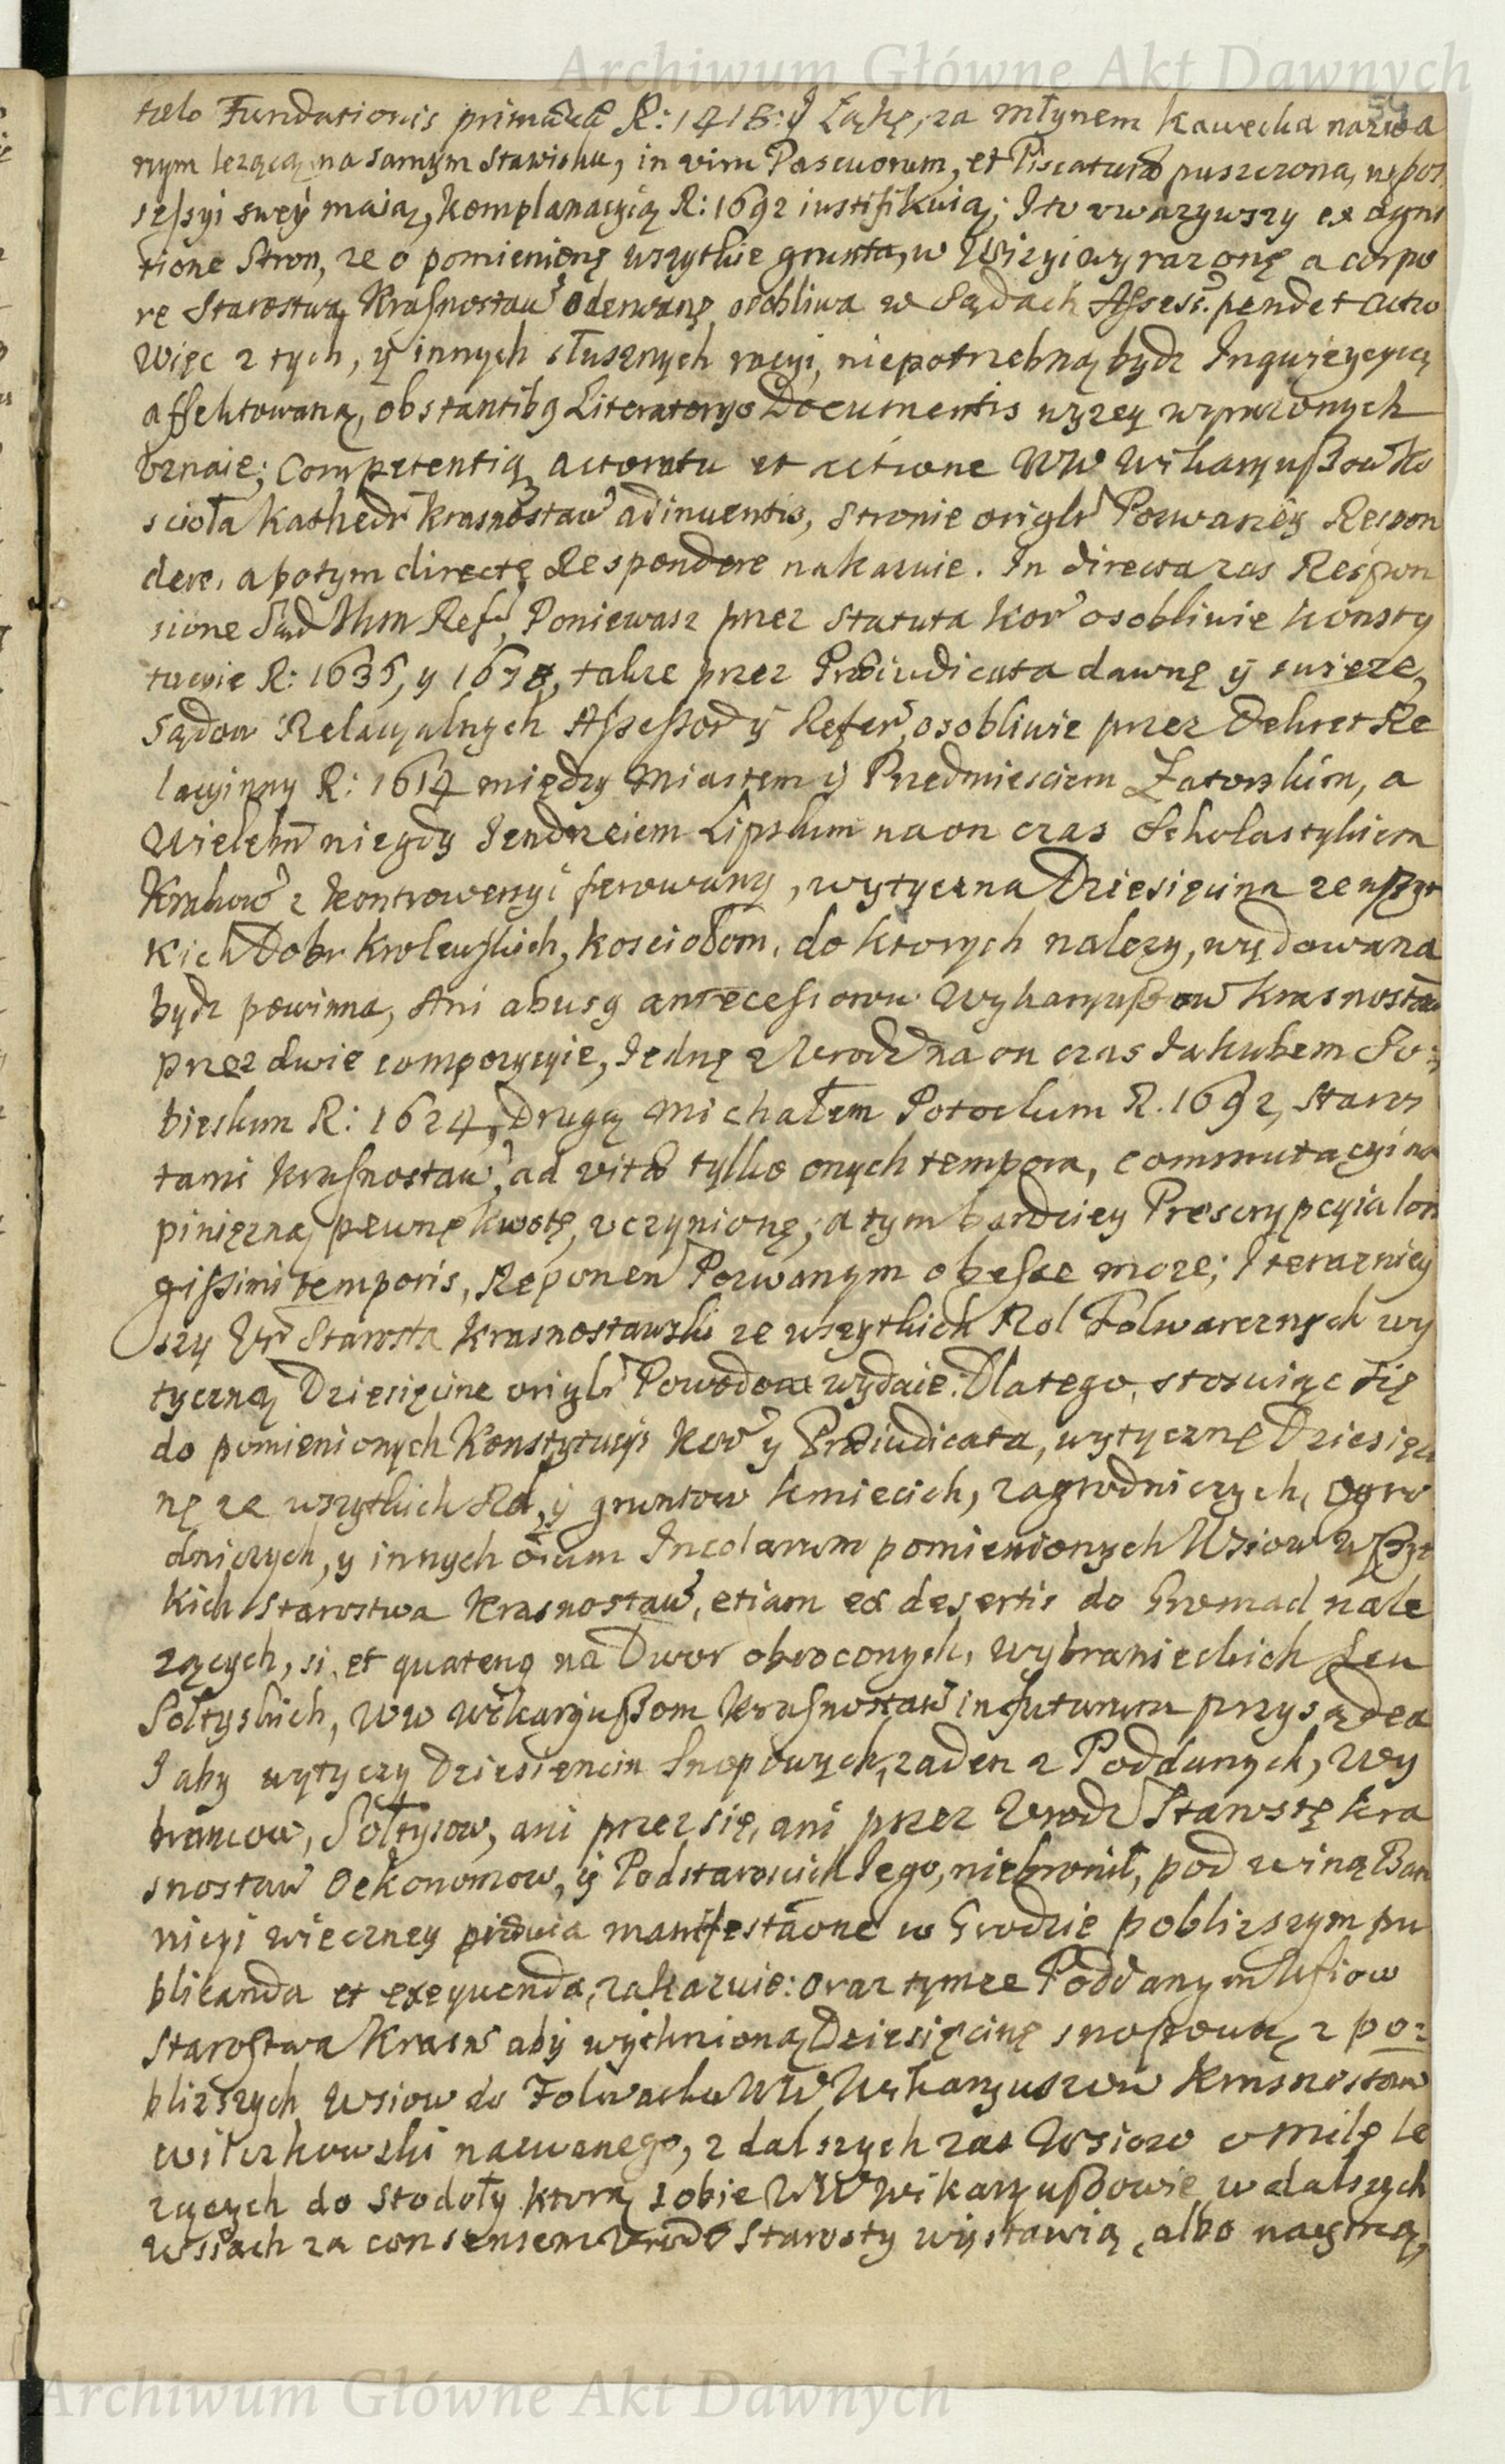 Archiwum Główne Akt Dawnych
tulo Fundationis R: 1418: y Łąkę, za młynem Kawecka nazwa
nym lezącą na samym Stawisku, in vim Pascuorum, et Piscaturæ puszczoną, w pos
sessyi swey maią, Komplanacyią R: 1692 iustifikuią; Ito uwazywszy ex agni
tione Stron, ze o pomienionę wszytkie grunta, w Wizyi wyrazonę a corpo
re Starostwa Krasnostaw oderwanę, osobliwa w Sądach Assess. pendet actio
Więc z tych, y innych słusznych racyi, niepotrzebną bydz Inqwizycyią
affektowaną, obstantibq Literatorys Documentis wyzey wyrazonych
uznaie; Competentią actoratu et actione WW Wikaryuszow Ko
scioła Kathedr Krasnostaw adinuentis, Stronie origlr Pozwaney Respon
dere, a potym directę Respondere nakazuie. In directa zas Respon
sione Sąd Nin Refr, Poniewasz przez Statuta Kor osobliwie Konsty
tucyie R: 1635, y 1678, takze przez Præiudicata dawnę y swieze,
Sądow Relacyalnych Assessor y Refer, osobliwie przez Dekret Re
lacyinny R: 1614 między Miastem y Przedmiesciem Zatorskim, a
Wielebn niegdy Jendrzeiem Lipskim na on czas Scholastykiem
Krakow z Kontrowersyi ferowany, wytyczna Dziesięcina ze wszyt
kich Dobr Krolewskich, Kosciołom, do ktorych nalezy, wydawana
bydz powinna, Ani abusq antecessorow Wykaryuszow Krasnostaw
przez dwie compozycyie, Jednę z Urodz na on czas Jakubem So:
bieskim R: 1624, Drugą Michałem Potockim R. 1692, Staros
tami Krasnostaw, ad vitæ tylko onych tempora, commutacyi na
pinięzną pewnę kwotę, uczynionę; a tym bardziey Preskrypcyia lon
gissimi temporis, Reponen Pozwanym obesse moze; I terazniey
szy Ur Starosta Krasnostawski ze wszytkich Rol Folwarcznych wy
tyczną Dziesięcine origlr Powodom wydaie. Dlatego, stosuiąc się
do pomienionych Konstytucyi Kor y Præiudicata, wytycznę Dziesięci
nę ze wszytkich Rol, y gruntow kmiecich, zagrodniczych, ogro
dniczych, y innych oium Incolarum pomienionych Wsiow wszyt
kich Starostwa Krasnostaw, etiam ex desertis do Gromad nale
zących, si et quatenq na Dwor obroconych, wybranieckich seu
Sołtyskich, WW Wikaryuszom Krasnostaw in futurum przysądza
I aby wytyczy Dziesiencin Snopowych, zaden z Poddanych, Wy
brancow, Sołtysow, ani przez się, ani przez Urodz Starostę Kra
snostaw Oekonomow, y Podstaroscich Jego, niebronił, pod winą Ban
nicyi wieczney prævia manifestaone w Grodzie pobliszym pu
blikanda et exequenda, zakazuie: oraz tymze Poddanym Wsiow
Starostwa Krasn aby wychnioną Dziesięcinę snopową, z po:
bliszych Wsiow do Folwarku WW Wikaryuszow Krasnostaw
Witczkowski nazwanego, z dalszych zas Wsiow o milę le
zących do stodoły ktorą sobie WW Wikaryuszowie w dalszych
Wsiach za consensem Urodz Starosty wystawią, albo naymą,
Archiwum Główne Akt Dawnych